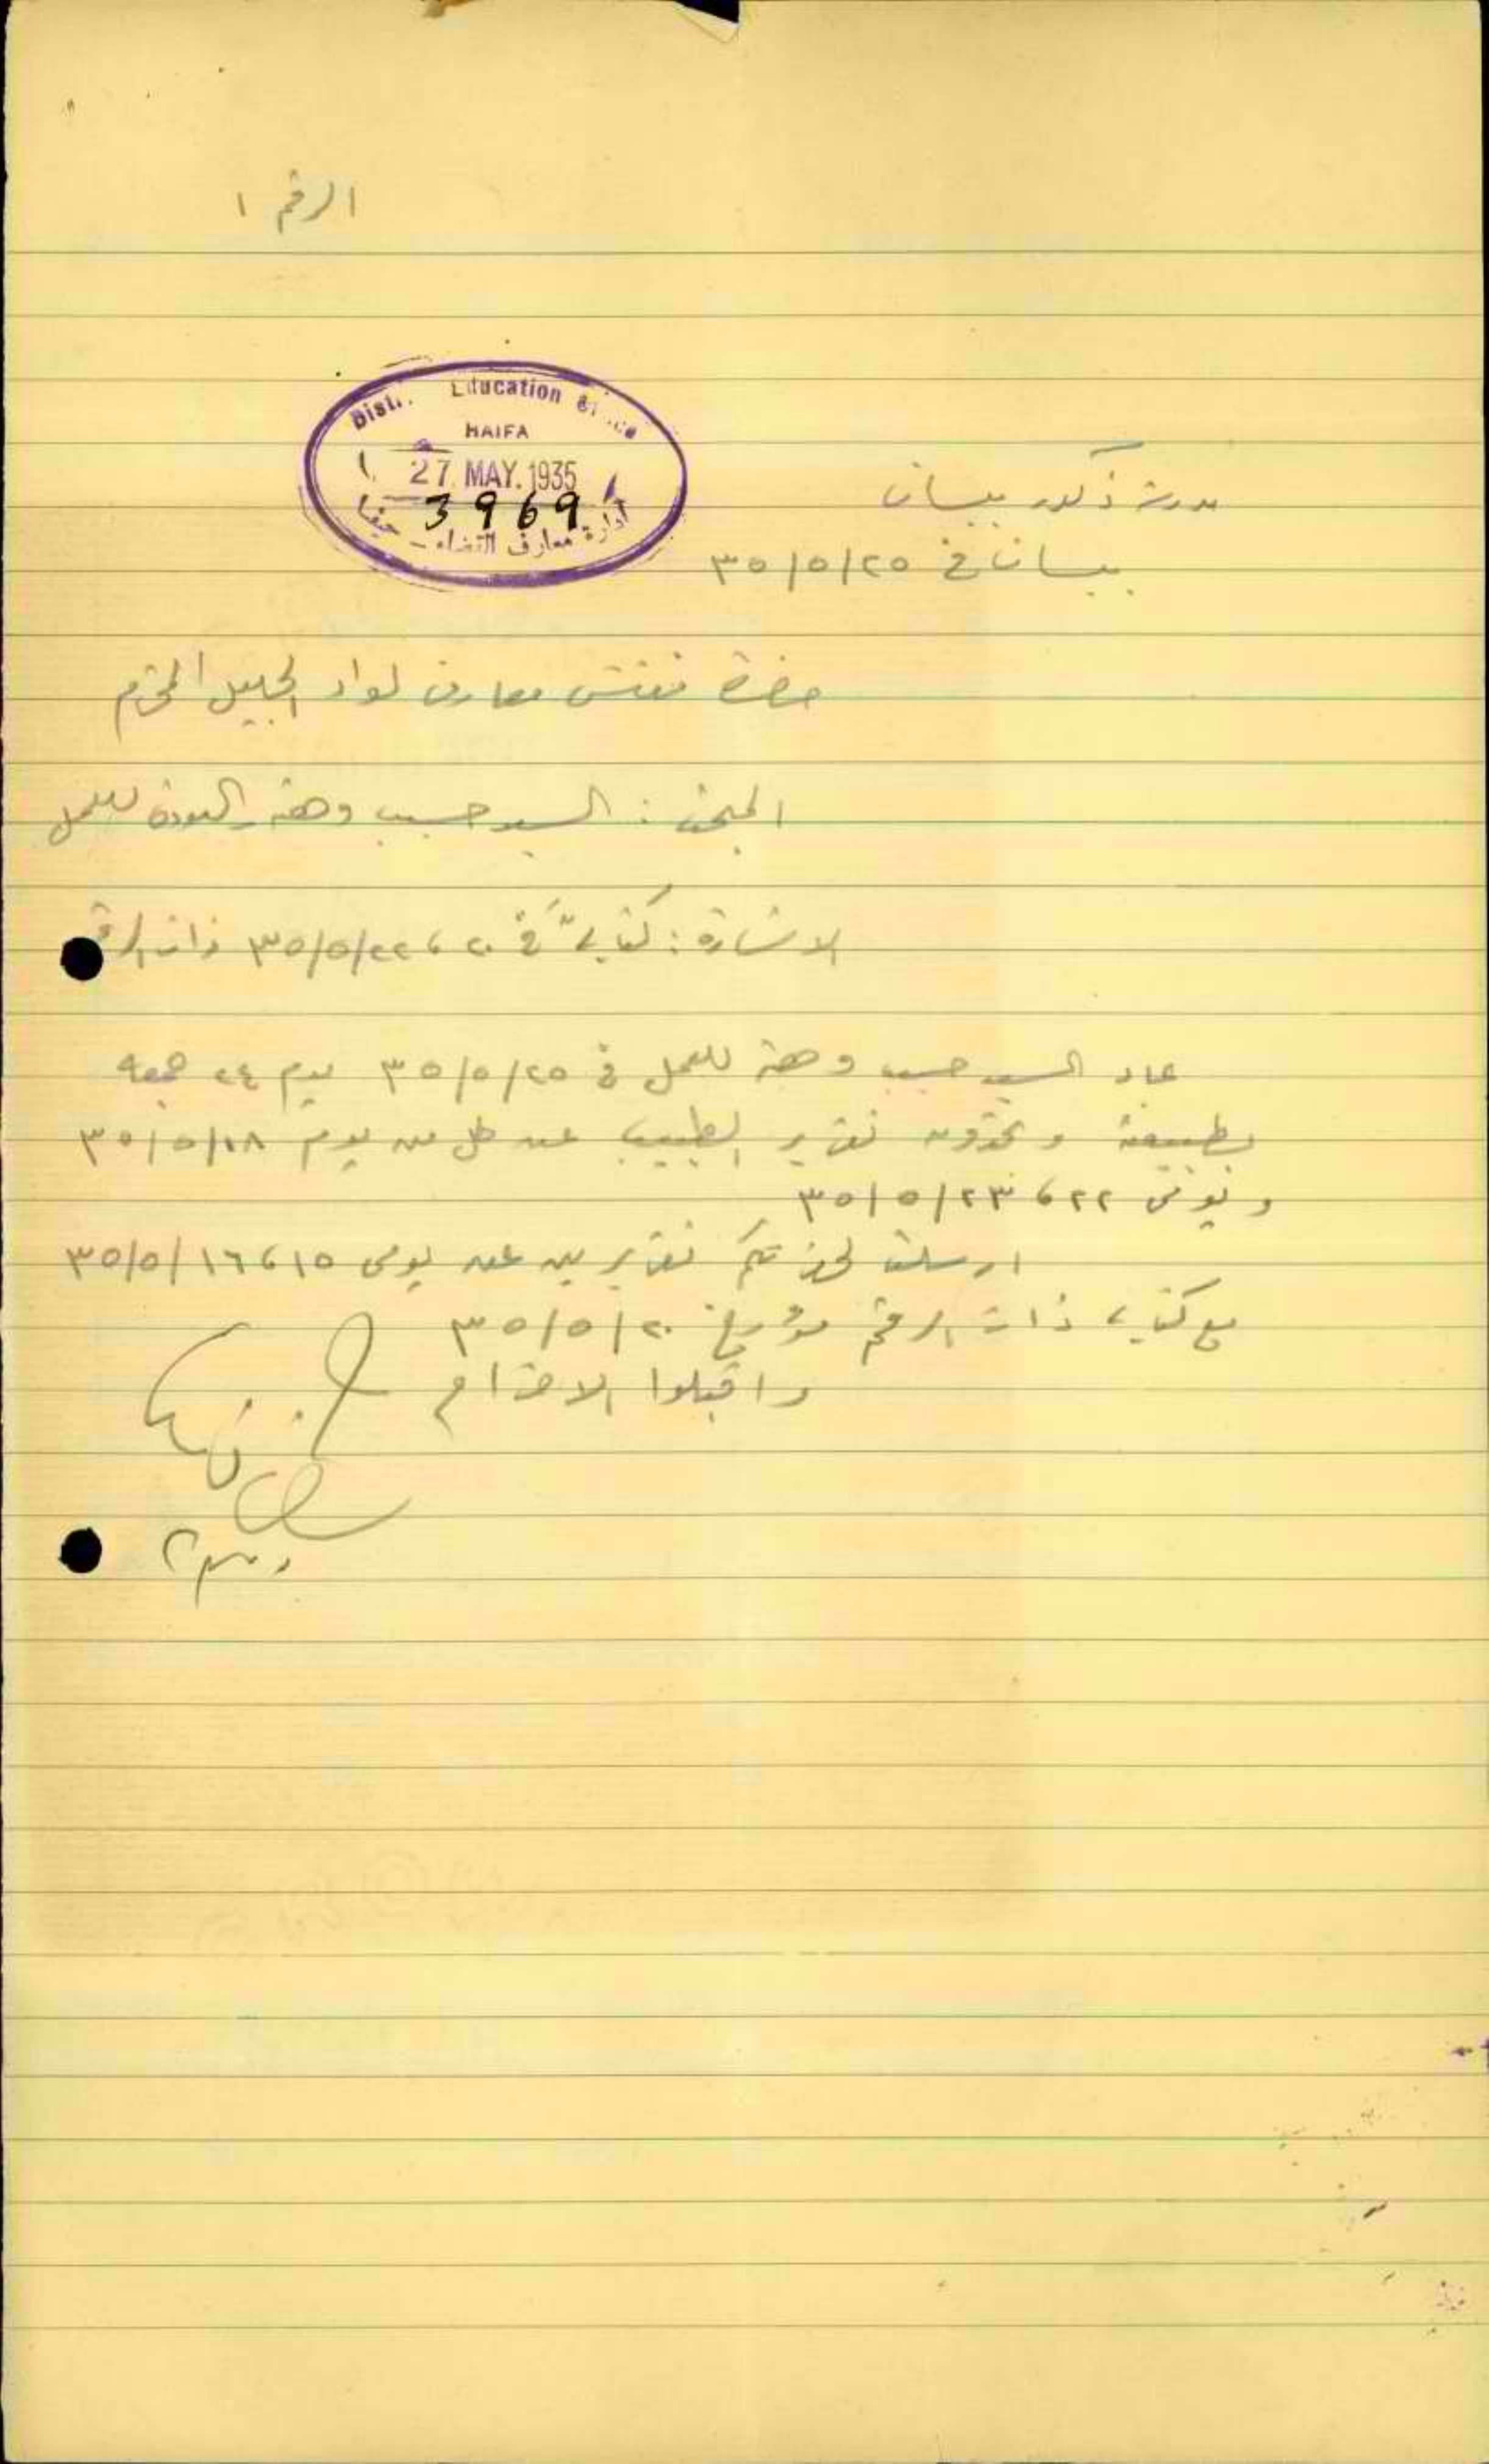 الرقم ١
Education
HAIFA
27 MAY. 1935
3969
ادارة معارف القضاء - حيفا
مدرسة ذكور بيسان
بيسان في ٣٥/٥/٢٥
حضرة مفتش معارف لواء الجليل المحترم
المبحث : السيد حسيب وهبه والعودة للعمل
الاشارة : كتابي في ٢٠ ، ٣٥/٥/٢٢ ذات الرقم
عاد السيد حسيب وهبه للعمل في ٣٥/٥/٢٥ يوم ٢٤ جمعه
بطبيعته وتجدون تقرير الطبيب عن كل من يوم ٣٥/٥/١٨
ويومي ٢٢ ، ٣٥/٥/٢٣
ارسلت لحضرتكم تقريرين عن يومي ١٥ ، ٣٥/٥/١٦
مع كتابي ذات الرقم مؤرخ ٣٥/٥/٢٠
واقبلوا الاحترام